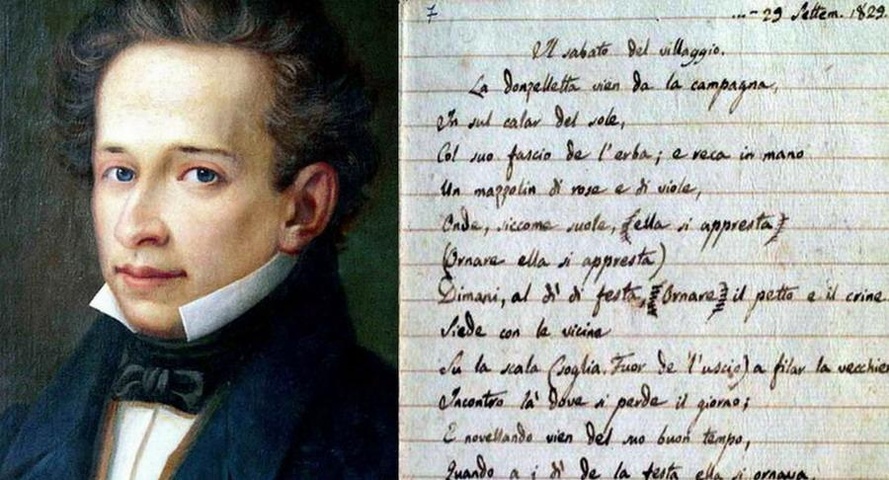 7
... - 29 Settem. 1829
Il sabato del villaggio.
La donzelletta vien da la campagna,
In sul calar del sole,
Col suo fascio de l'erba; e reca in mano
Un mazzolin di rose e di viole,
Onde, siccome suole, (ella si appresta)
(Ornare ella si appresta)
Dimani, al dì di festa, (Ornare) il petto e il crine.
Siede con le vicine
Su la scala (soglia. Fuor de l'uscio) a filar la vecchier
Incontro là dove si perde il giorno;
E novellando vien del suo buon tempo,
Quando a i dì de la festa ella si ornava,